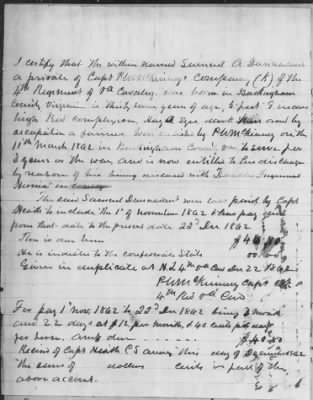 I certify that the within named Samuel A Dunnavant
a private of Capt P W McKinney's Company (K) of the
4th Regiment of Va Cavalry was born in Buckingham
County Virginia is thirty years of age, 5 feet 8 inches
high Red complexion, Hazle Eyes dark Hair and by
occupation a farmer. Was enlisted by P W McKinney on the
11th March 1862 in Buckingham County to serve for
3 years or the war and is now entitled to his discharge
by reason of his being diseased with Double Inguinal
Hernia
The said Samuel Dunnavant was last paid by Capt
Heath to include the 1st of November 1862 & has pay due
from that date to the present date 22d Dec 1862
There is due him
He is indebted to the confederate States 00.00
Given in duplicate at Dec 22 1862
P W McKinney Capt
4th Va Cav
For pay 1st Nov 1862 to 22d Dec 1862 being 1 month
and 22 days at $12 per month, & 40 cents per day
for horse. amt due
Recvd of Capt Heath C S army this day of 1862
the sum of dollars cents in part of the
above account.